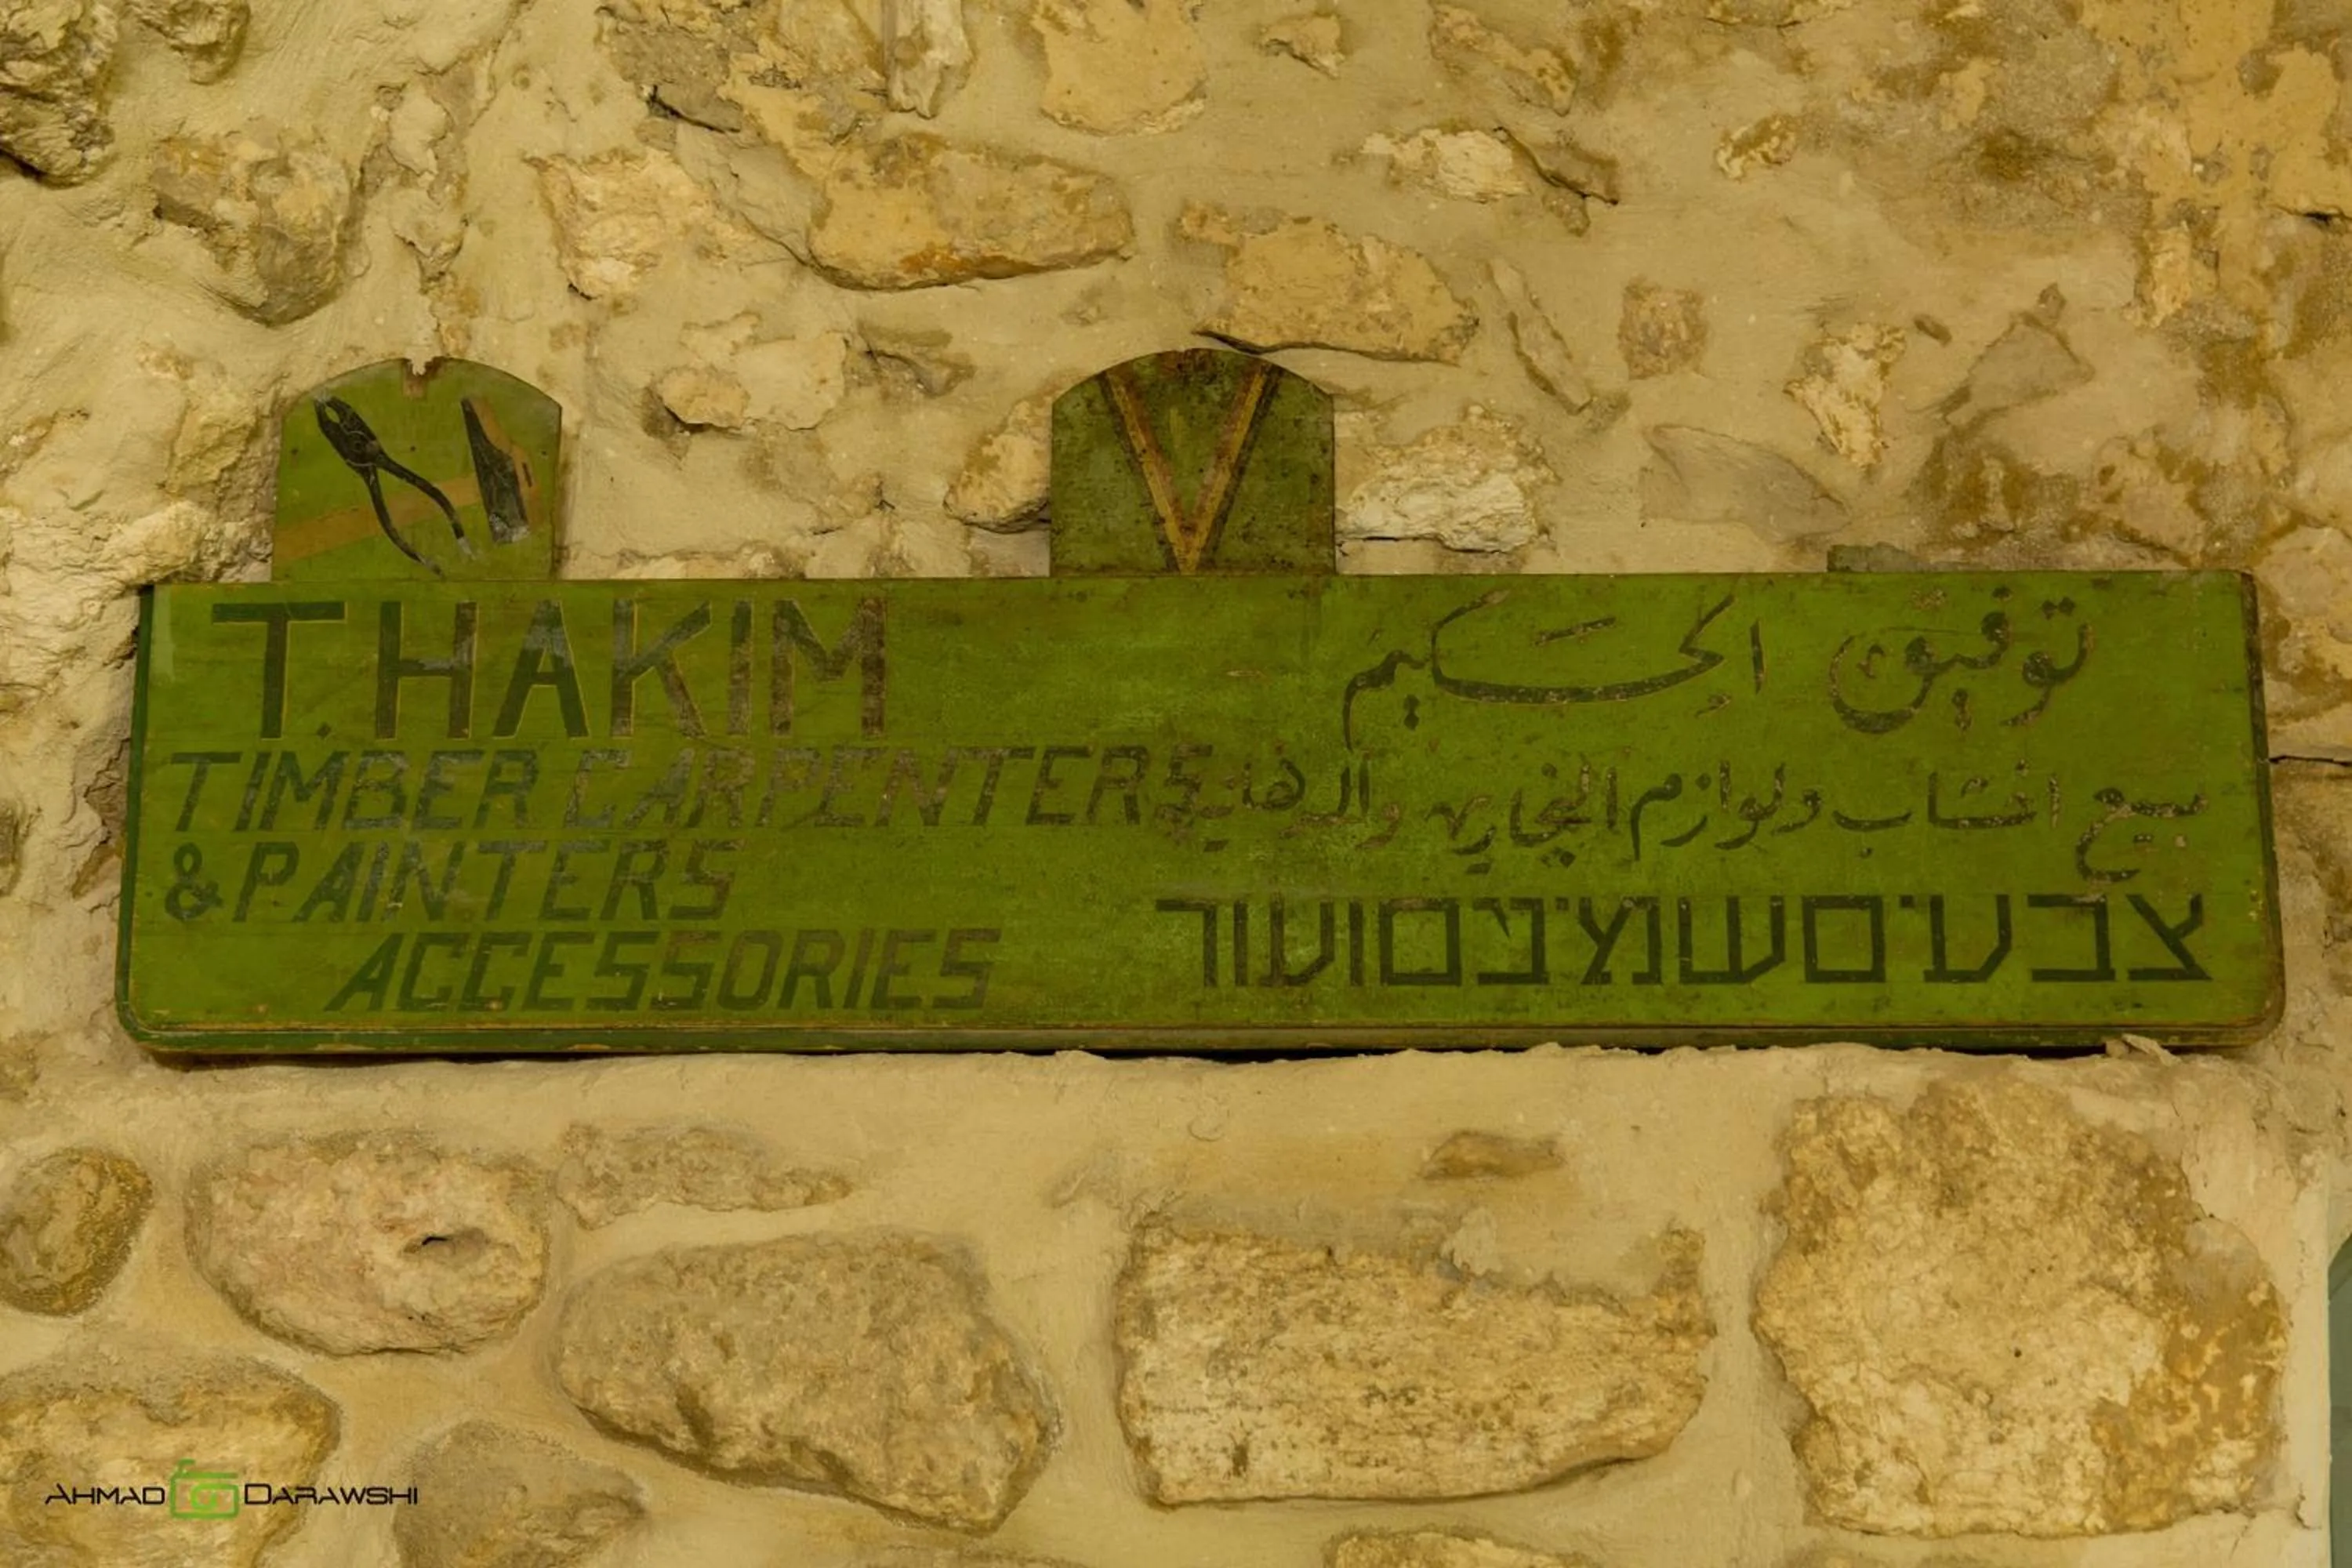 T. HAKIM
TIMBER CARPENTERS
& PAINTERS
ACCESSORIES
توفيق الحكيم
بيع اخشاب ولوازم النجارين والدهانين
צבעים שמינים ועור
AHMAD DARAWSHI